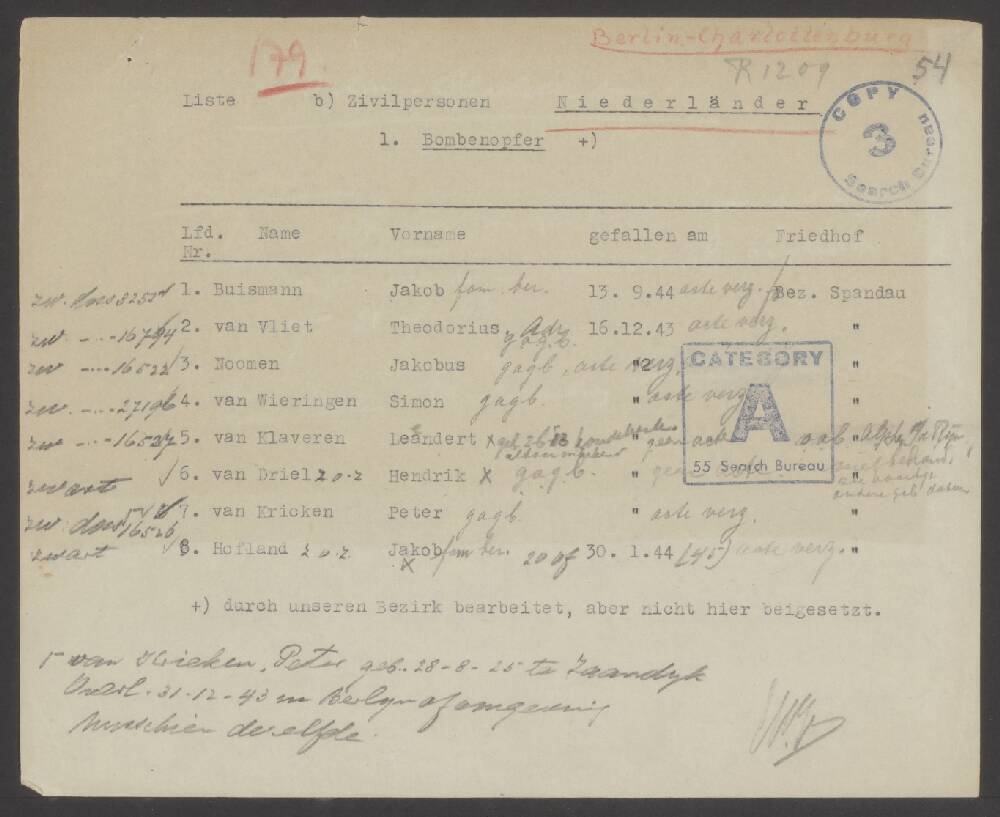 179.
Berlin-Charlottenburg
R 1209
54
Liste b) Zivilpersonen Niederländer
1. Bombenopfer +)
COPY
3
Search Bureau
Lfd. Nr. Name Vorname gefallen am Friedhof
zw. doss 1. Buismann Jakob fam. ber. 13. 9.44 acte verg. Bez. Spandau
zw 2. van Vliet Theodorius, gagb. 16.12.43 acte verg. "
zw 16522 3. Noomen Jakobus gagb. acte verg. "
zw. 27196 4. van Wieringen Simon gagb. " acte verg.
zw 16527 5. van Klaveren Leendert x geb. " geen acte a/d Rijn
zwart 6. van Driel z o z Hendrik x gagb. " "
zw. doss 16526 7. van Kricken Peter gagb. " acte verg. "
zwart 8. Hofland z o z Jakob fam ber. x 20 of 30. 1.44 (45) acte verg. "
CATEGORY
A
55 Search Bureau
andere geb. datum
+) durch unseren Bezirk bearbeitet, aber nicht hier beigesetzt.
van Kricken, Peter geb. 28-8-25 te Zaandijk
Overl. 31-12-43 in Berlijn of omgeving
Misschien dezelfde.